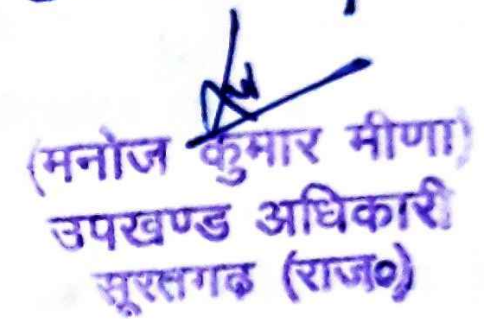 (मनोज कुमार मीणा)
उपखण्ड अधिकारी
सूरतगढ (राज०)